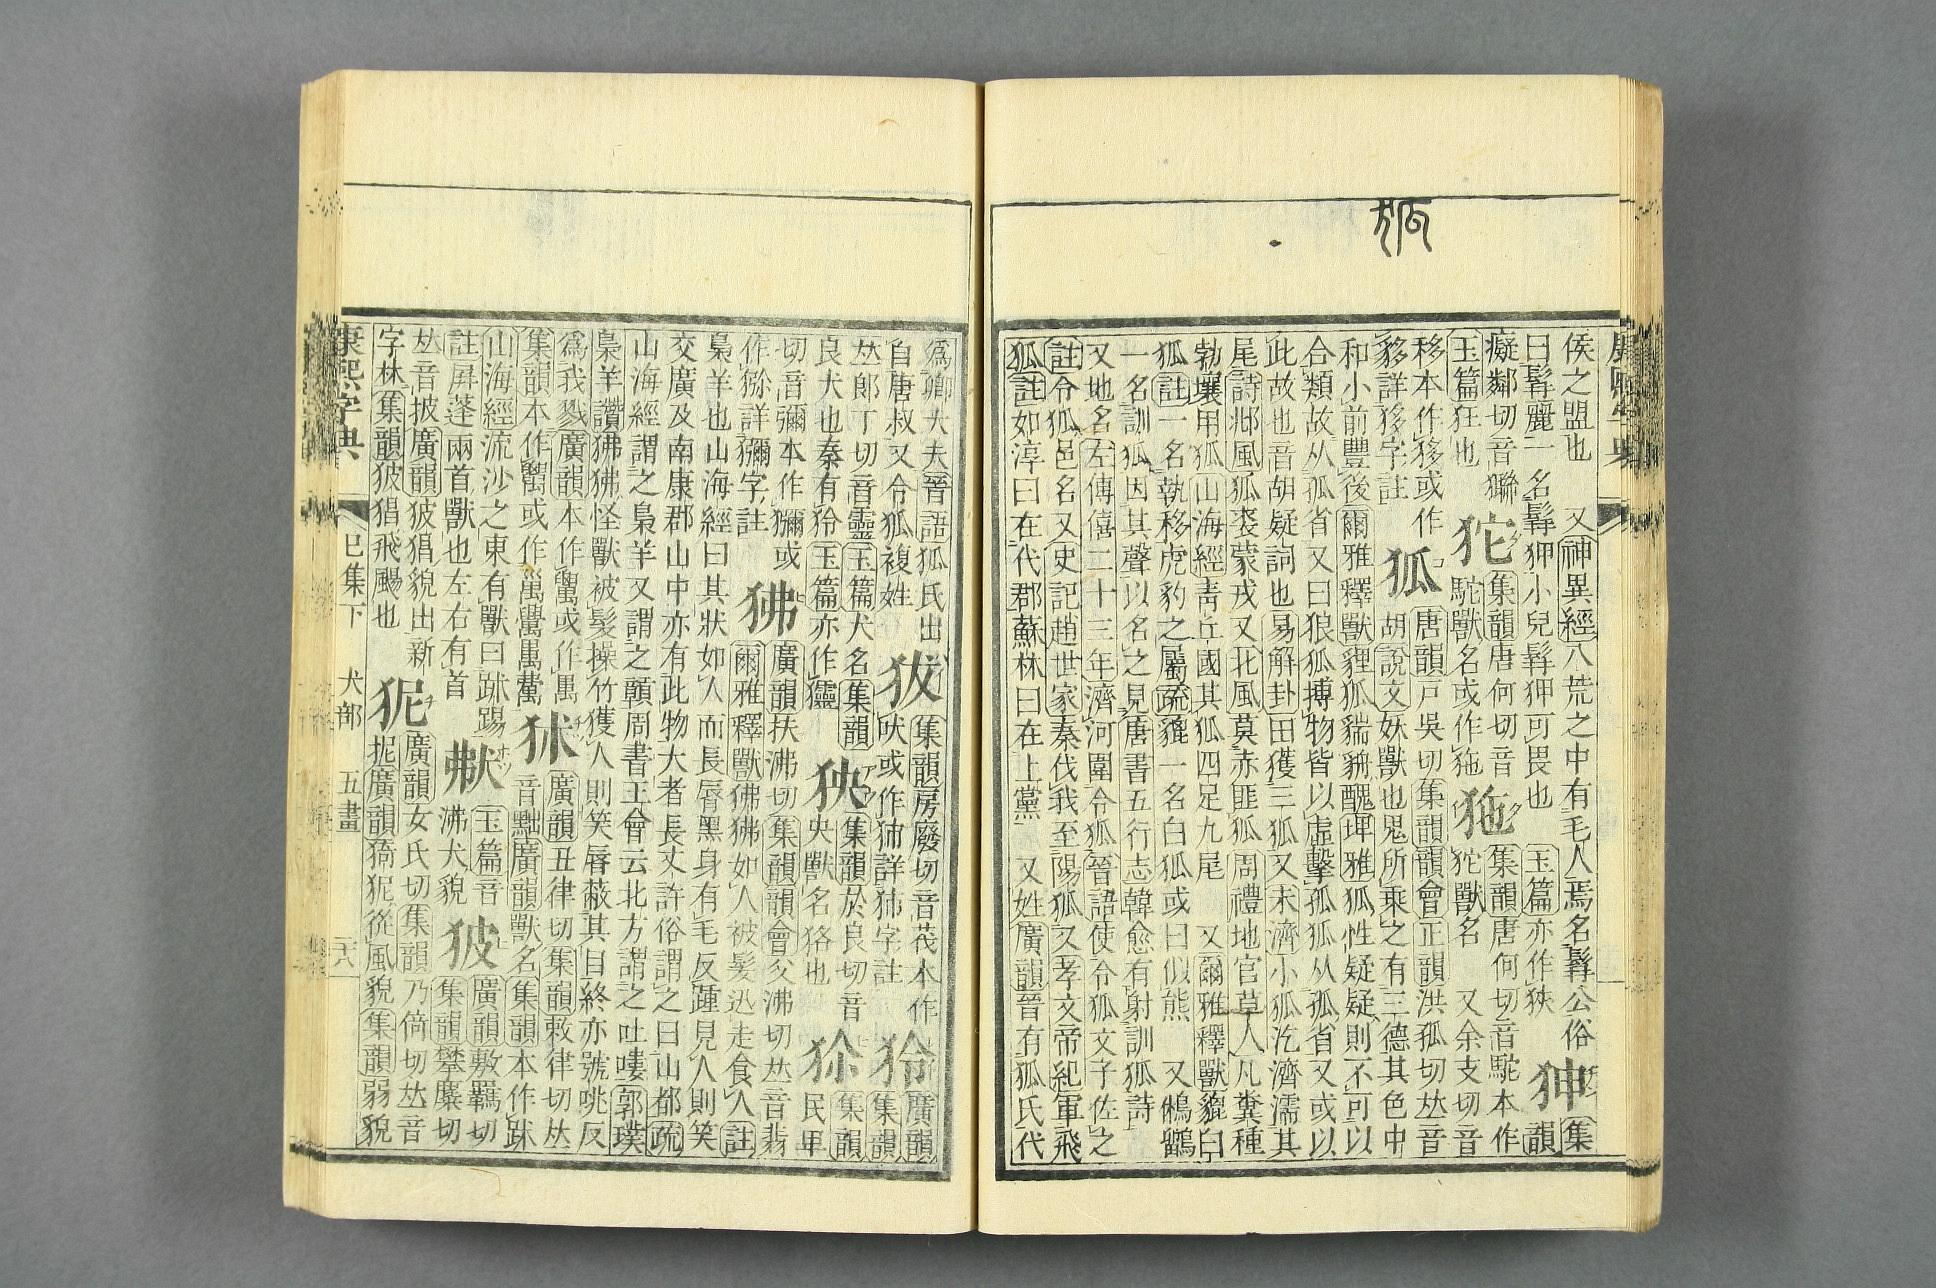 康熙字典
侯之盟也 又神異經八荒之中有毛人焉名髯公俗
曰髯麗一名髯狎小兒髯狎可畏也 玉篇亦作狹 狎 集韻
癡鄰切音獜 狏 集韻唐何切音駝本作
玉篇狂也 駝獸名或作狏 狏 集韻唐何切音
移本作移或作 狏獸名 又余支切音
貊詳移字註 狐 唐韻戸吳切集韻韻會正韻洪孤切𠀤音
和小前豐後 胡說文妖獸也鬼所乘之有三德其色中
爾雅釋獸貍狐貒貈醜埤雅狐性疑疑則不可以
合類故从孤省又曰狼狐搏物皆以虛擊孤狐从孤省又或以
此故也音胡疑詞也易解卦田獲三狐又未濟小狐汔濟濡其
尾詩邶風狐裘蒙戎又北風莫赤匪狐周禮地官草人凡糞種
勃壤用狐山海經靑丘國其狐四足九尾 又爾雅釋獸貔白
狐註一名執移虎豹之屬疏貔一名白狐或曰似熊 又鵂鶹
一名訓狐因其聲以名之見唐書五行志韓愈有射訓狐詩
又地名左傳僖二十三年濟河圍令狐晉語使令狐文子佐之
註令狐邑名又史記趙世家秦伐我至陽狐又孝文帝紀軍飛
狐註如淳曰在代郡蘇林曰在上黨 又姓廣韻晉有狐氏代
爲卿大夫晉語狐氏出
自唐叔又令狐複姓 犮 集韻房廢切音茷本作
吠或作犻詳犻字註 狑 廣韻
𠀤郎丁切音靈玉篇犬名集韻
良犬也秦有狑玉篇亦作㺡 狏 集韻於良切音
央獸名狢也 狝 集韻
民卑
切音彌本作獼或
作㺬詳獼字註 狒 廣韻扶沸切集韻韻會父沸切𠀤音翡
爾雅釋獸狒狒如人被髮迅走食人註
梟羊也山海經曰其狀如人而長脣黑身有毛反踵見人則笑
交廣及南康郡山中亦有此物大者長丈許俗謂之曰山都疏
山海經謂之梟羊又謂之贛周書王會云北方謂之吐嘍郭璞
梟羊讚狒狒怪獸被髮操竹獲人則笑脣蔽其目終亦號咷反
爲我戮廣韻本作𥝋或作𥜿
集韻本作𥝋或作 狖 廣韻丑律切集韻敕律切𠀤
音黜廣韻獸名集韻本作䟣
山海經流沙之東有獸曰䟣踢
註屛蓬兩首獸也左右有首 㹃 玉篇音
沸犬貌 狓 廣韻敷羈切
集韻攀麋切
𠀤音披廣韻狓猖貌出新
字林集韻狓猖飛颺也 狔 廣韻女氏切集韻乃倚切𠀤音
抳廣韻猗狔從風貌集韻弱貌
康熙字典 巳集下 犬部 五畫 二六